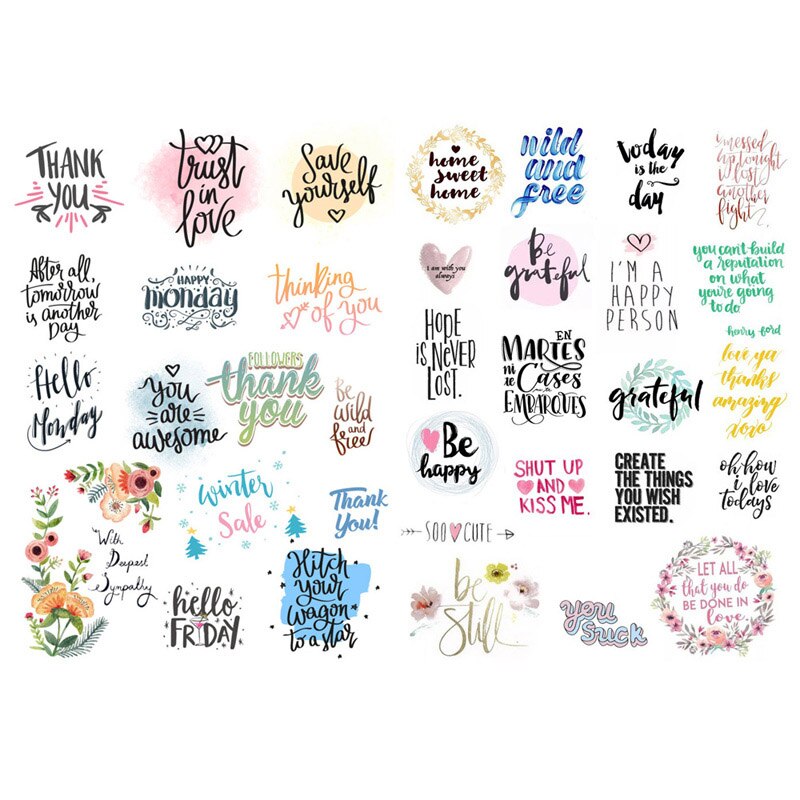 THANK
YOU
trust
in
love
Save
yourself
home
sweet
home
wild
and
free
today
is the
day
messed
up tonight
i lost
another
fight
After all,
tomorrow
is another
Day
HAPPY
monday
thinking
of you
I am with you
always
Be
grateful
I'M A
HAPPY
PERSON
you can't build
a reputation
on what
you're going
to do
henry ford
Hello
Monday
You
are
awesome
FOLLOWERS
thank
you
Be
wild
and
free!
HOPE
IS NEVER
LOST.
EN
MARTES
ni te
CASES
EMBARQUES
grateful
love ya
thanks
amazing
xoxo
Be
happy
SHUT UP
AND
KISS ME.
CREATE
THE THINGS
YOU WISH
EXISTED.
oh how
i love
todays
With
Deepest
Sympathy
winter
Sale
Thank
You!
hello
FRIDAY
Hitch
your
wagon
to a star
SOO CUTE
be
still
you
suck
LET ALL
that you do
BE DONE IN
love.